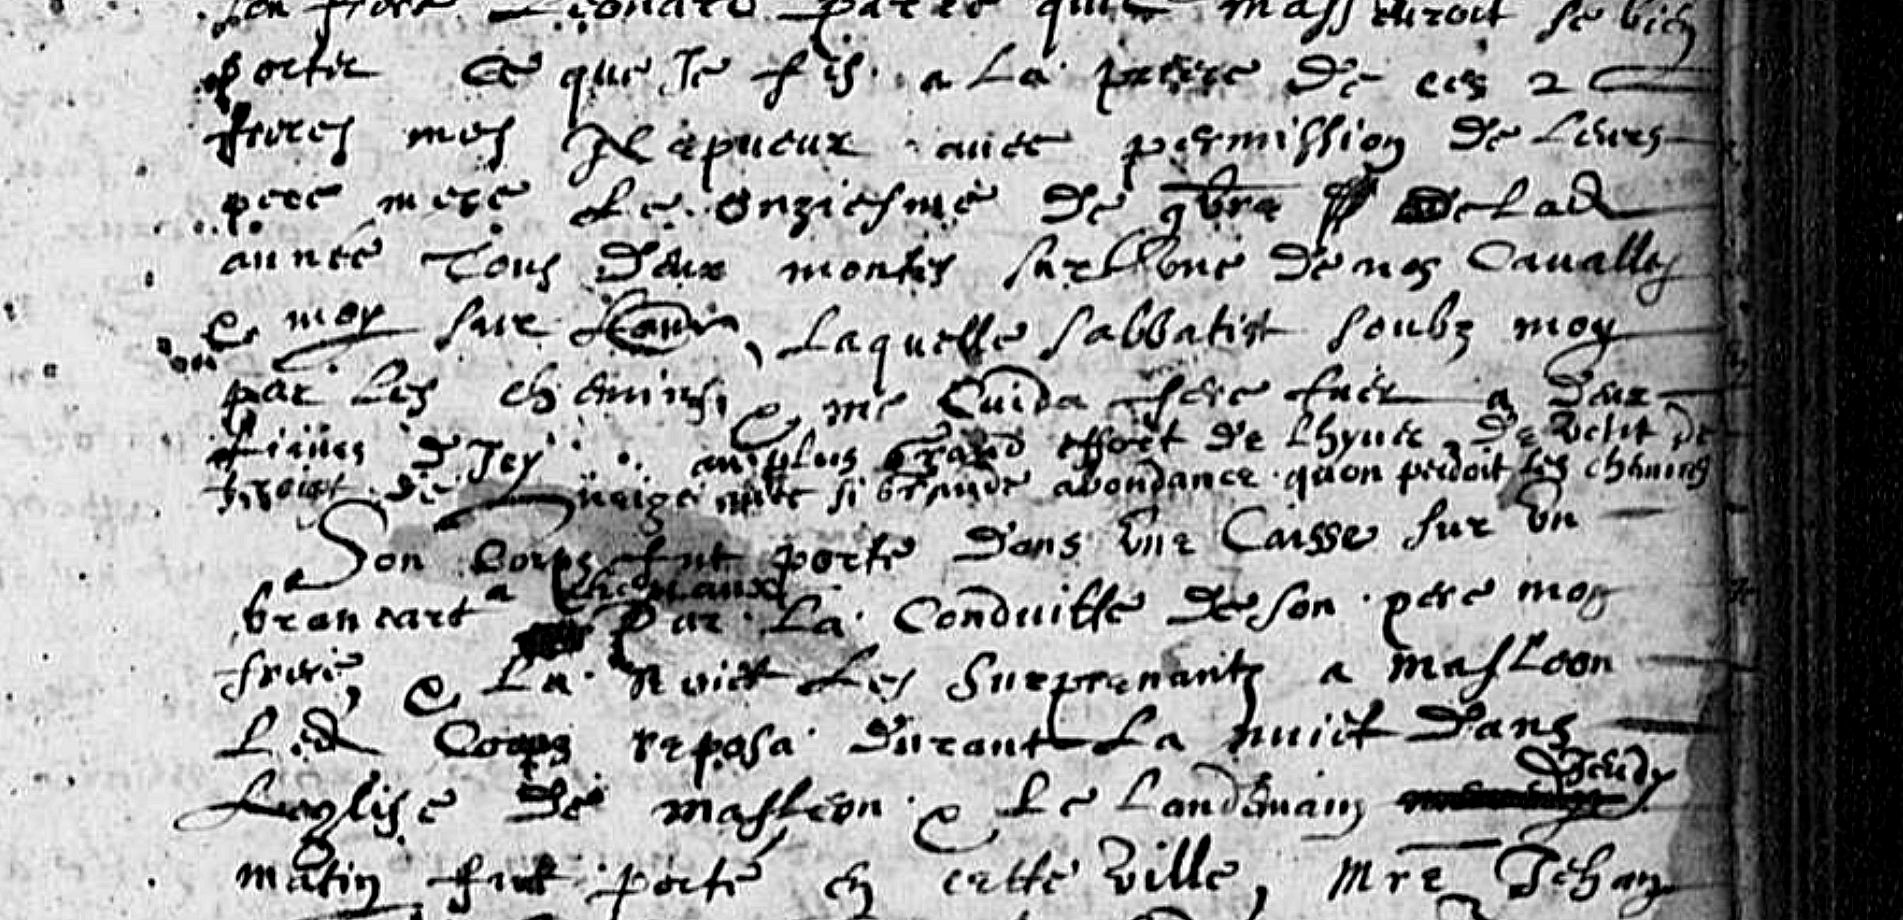 son frere Leonard parce quil massuroit se bien
porter Ce que Je fis a La priere de ces 2
freres mes Nepueux auec permission de Leurs
pere mere Le onziesme de 9bre de Lad
année Tous deux montes sur Lune de nos Cavalles
& moy sur Laquelle sabbatist soubz moy
par Les chemins, & me Cuida fere tuer a deux
Liëues d Icy au plus grand effort de Lhyuer, De vent De
froict de neige avec si grande abondance quon perdoit les chemins
Son Corps fut porté dans Vne Caisse sur Vn
brancart a
Par La Conduitte de son pere mon
frere, & La Nuict Les surprenants a masleon
Led Corps reposa durant La nuict dans
Leglise de masleon & Le Landemain Jeudy
matin fut porté en cette Ville, Mre Jehan